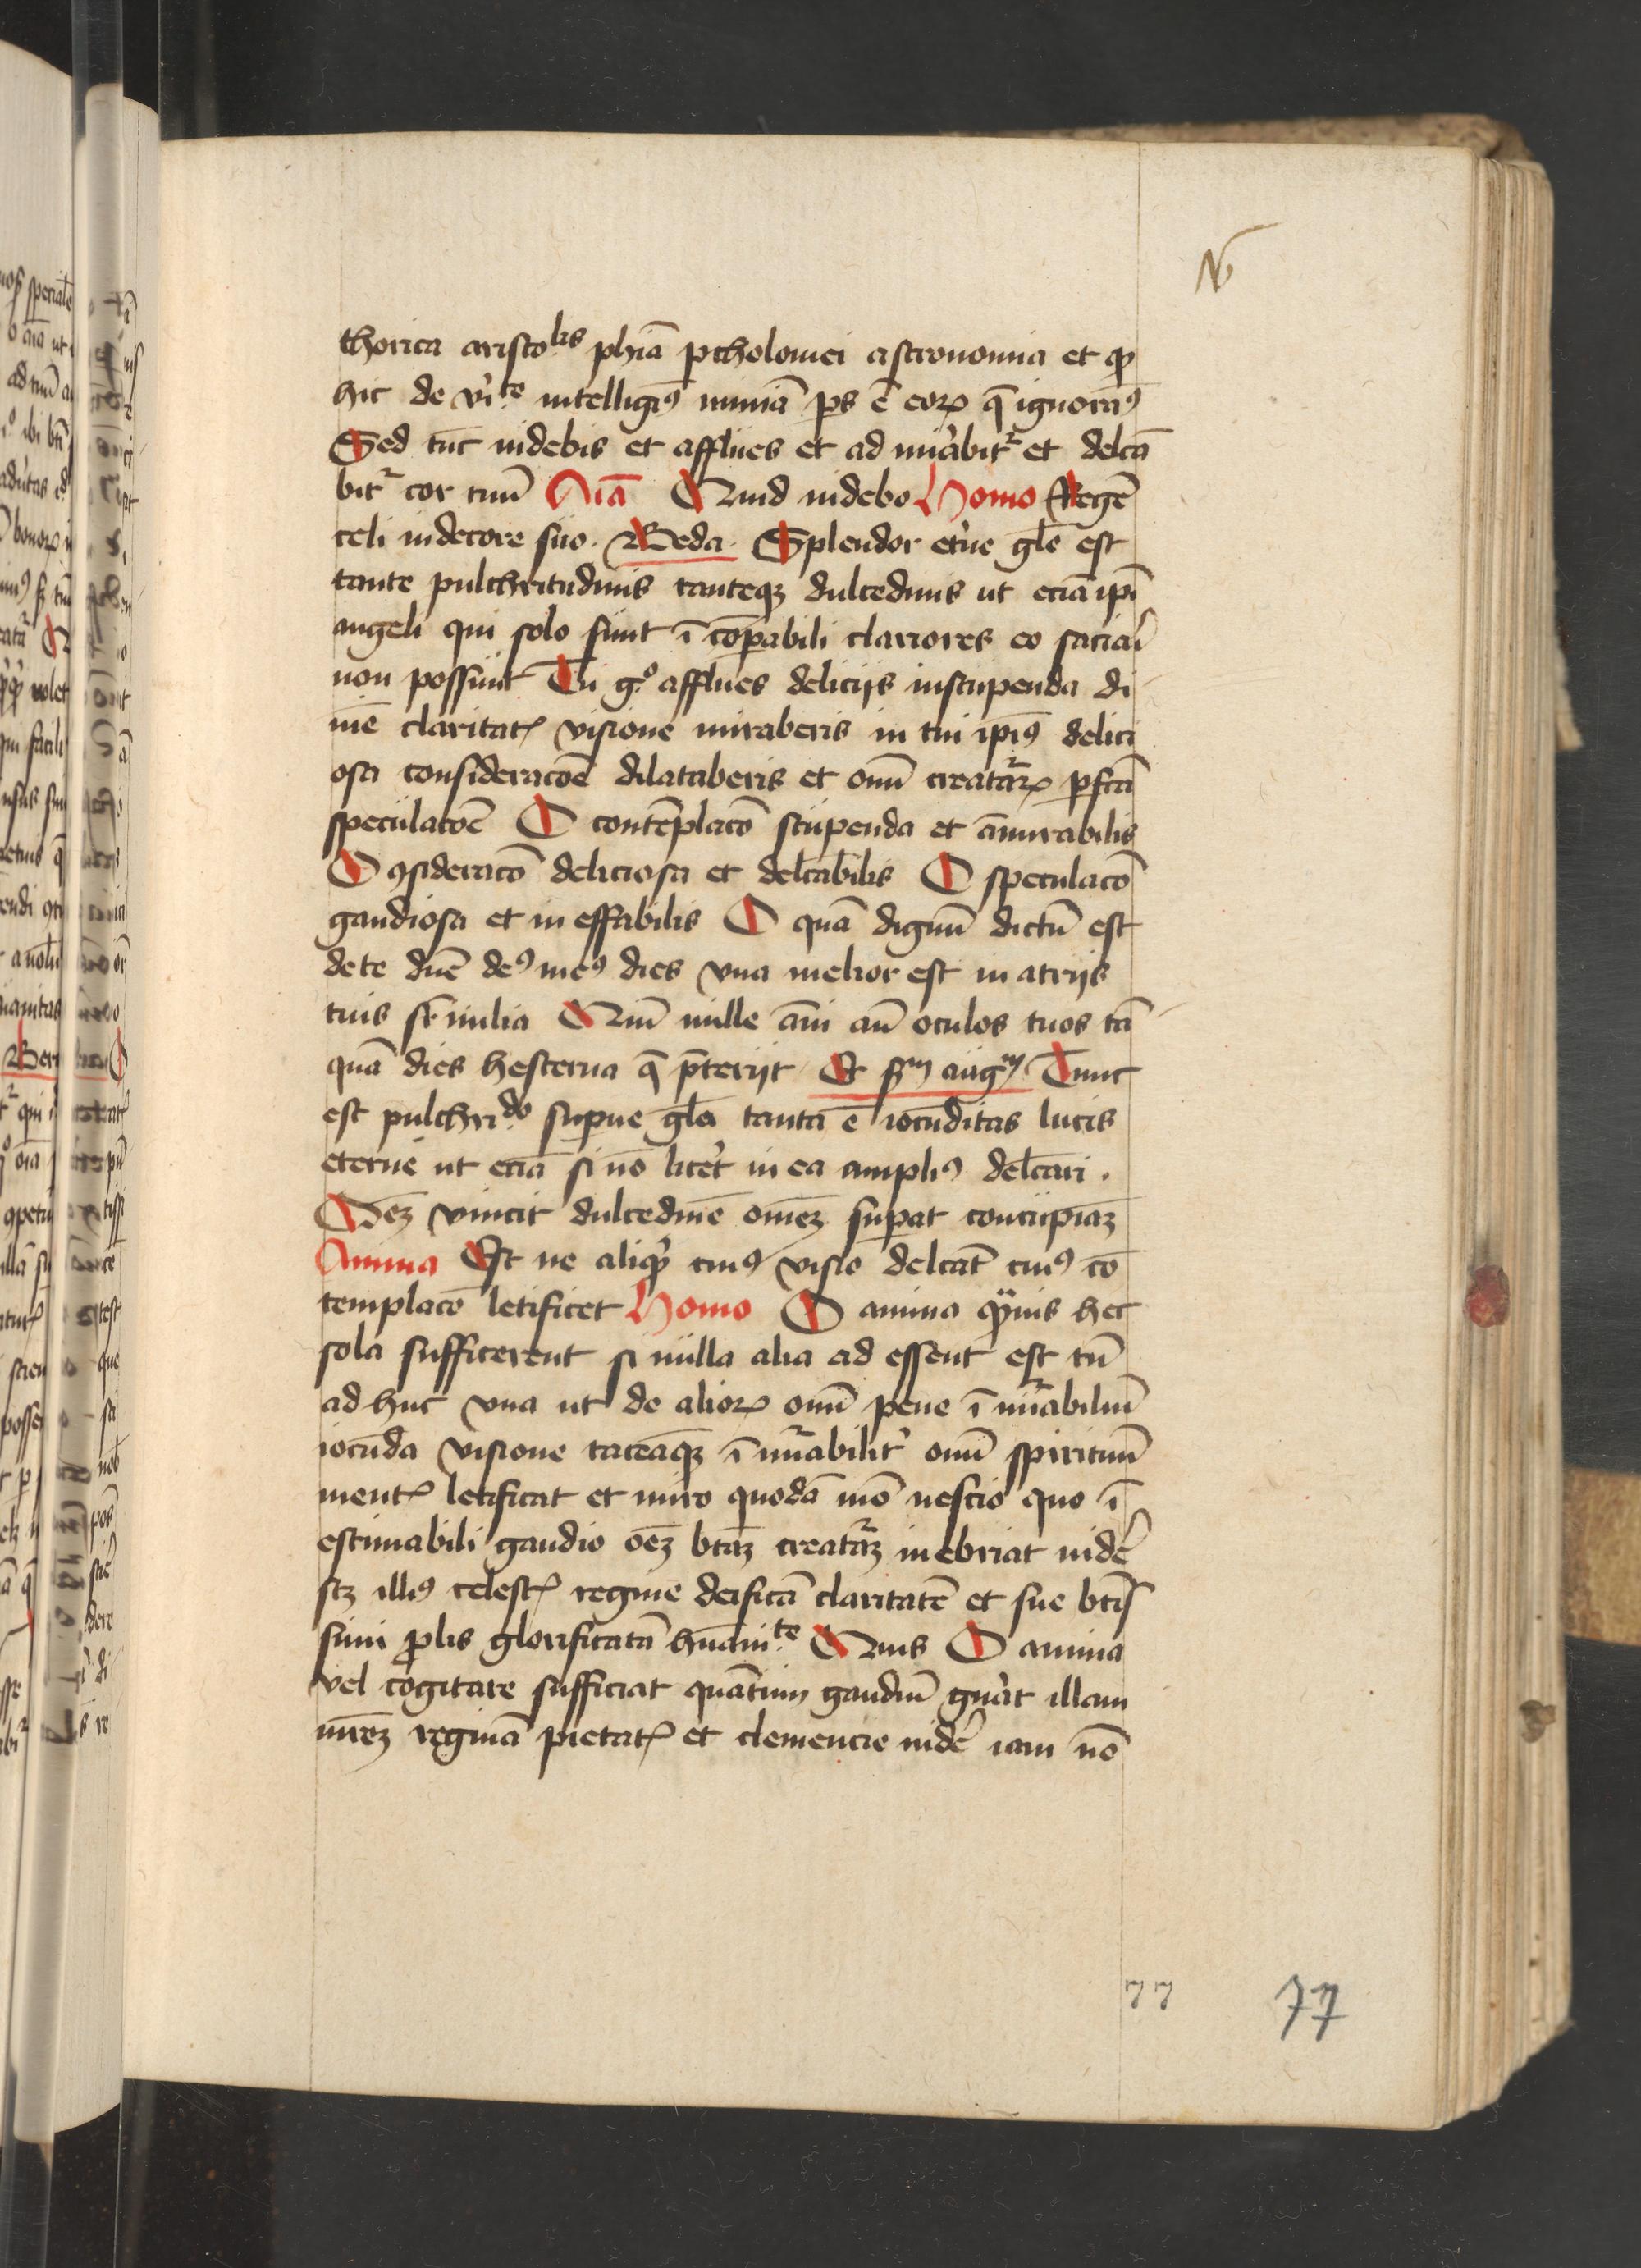 thorica aristo.lis phiā ptholomei astronomia et qͥ
hic de vi.te intelligimꝯ minīa ps ē eoꝝ q̄ ignoramꝯ
Sed tūc uidebis et afflues et ad mirabitᷣ et delcā
bitᷣ cor tuū Aīa Quid uidebo Homo Regē
celi in decore suo. Beda. Splendor et̓ne gl̄e est
tante pulchritudinis tanteqꝫ dulcedinis ut eciā ip̄i
angeli qui solo sunt ī cōpabili clariores eo saciai̓
non possunt Tu g.º afflues delicijs in stupenda di
uīe claritatꝭ visione miraberis in tui ip̄iꝯ delici
osa consideracōe dilataberis et om̄ creatᷣaꝝ pfcā
speculacōe O contēplacō stupenda et āmirabilis
O ꝯsideracō deliciosa et delcābilis O speculacō
gaudiosa et in effabilis O quā dignū dictū est
de te dn̄e deꝯ meꝯ dies vna melior est in atrijs
tuis sꝑ milia Qm̄ mille ām an̄ oculos tuos tā
quā dies hesterna q̄ p̄terijt Et sm̄ aug.m Tunc
est pulchri.do supne gl̄a tanta ē iocūditas lucis
eterne ut eciā si nō licet̓ in ea ampliꝯ delcāri.
Oēꝫ vincit dulcedinē omēꝫ supat concupīaꝫ
Anima Est ne aliqͥ cuiꝯ visio delcāt cuiꝯ cō
templacō letificet Homo O anima quīs hec
sola sufficerent si nulla alia ad essent est tn̄
ad huc vna ut de alioꝝ om̄ pene ī mᷣabiliū
iocūda visione taceāqꝫ ī mᷣabilit̓ om̄ spirituū
mentꝭ letificat et miro quodā mō nescio quo ī
estimabili gaudio oēꝫ btāꝫ creatᷣaꝫ inebriat uide̓
sꝫ illiꝯ celestꝭ regine deificā claritatē et sue btīs
sim plis glorificatā hūani.te Quis O anima
vel cogitare sufficiat quātum gaudiū gn̓at illam
mr̄eꝫ reginā pietatꝭ et clemencie uide̓ iam nō
77
77